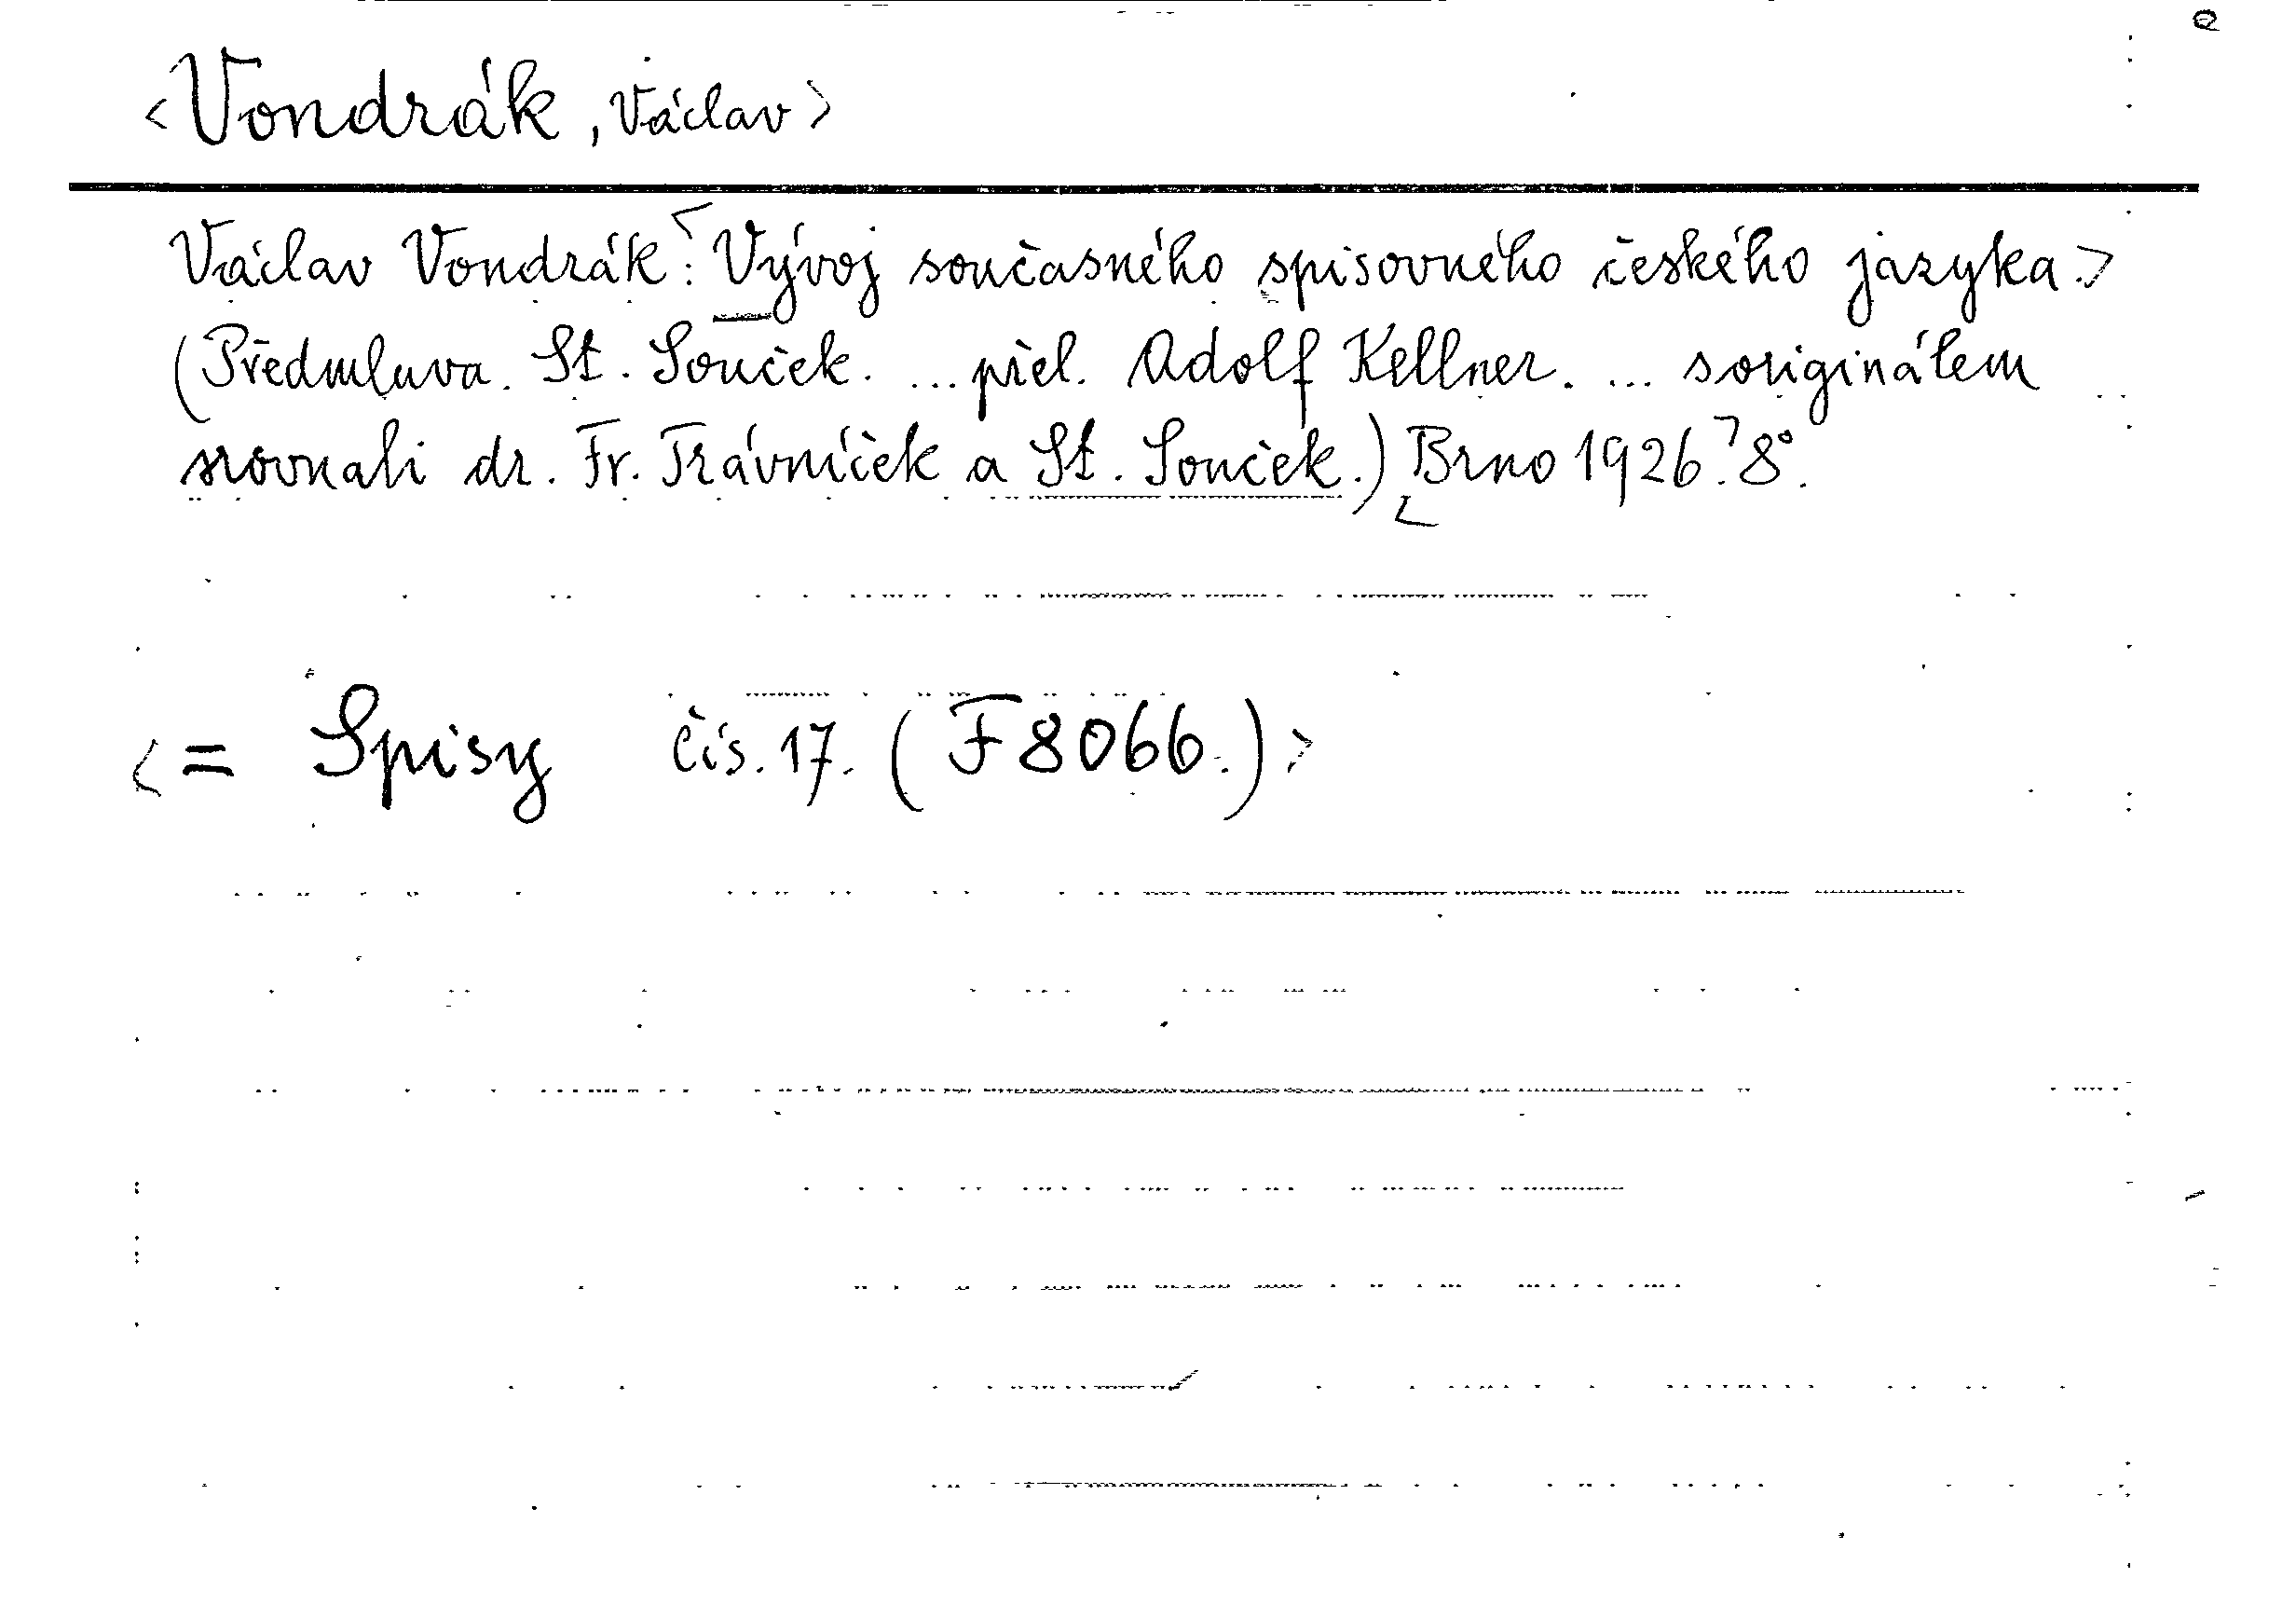 <Vondrák, Václav>
Václav Vondrák: Vývoj současného spisovného českého jazyka.>
(Předmluva. St. Souček. ... přel. Adolf Kellner. ... s originálem
srovnali dr. Fr. Trávníček a St. Souček.) Brno 1926. 8°.
<= Spisy čís. 17. (F 8066.)>